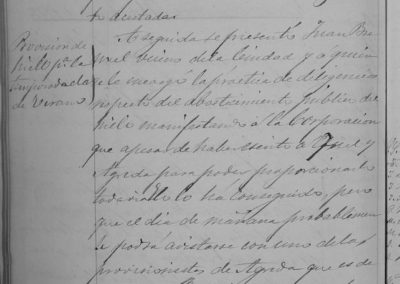 Provision de
hielo pª la
temporada
de Verano
A seguida se presentó Juan
vecino de la Ciudad y a quien
se encargó la practica de diligencias
respecto del abastecimiento público de
hielo manifestando á la Corporacion
que apesar de haber escrito á Teruel y
Agreda para poder proporcionarlo
todavia no lo ha conseguido, pero
que el dia de mañana probablemen
te podrá avistarse con uno de los
provisionistas de Agreda que es de